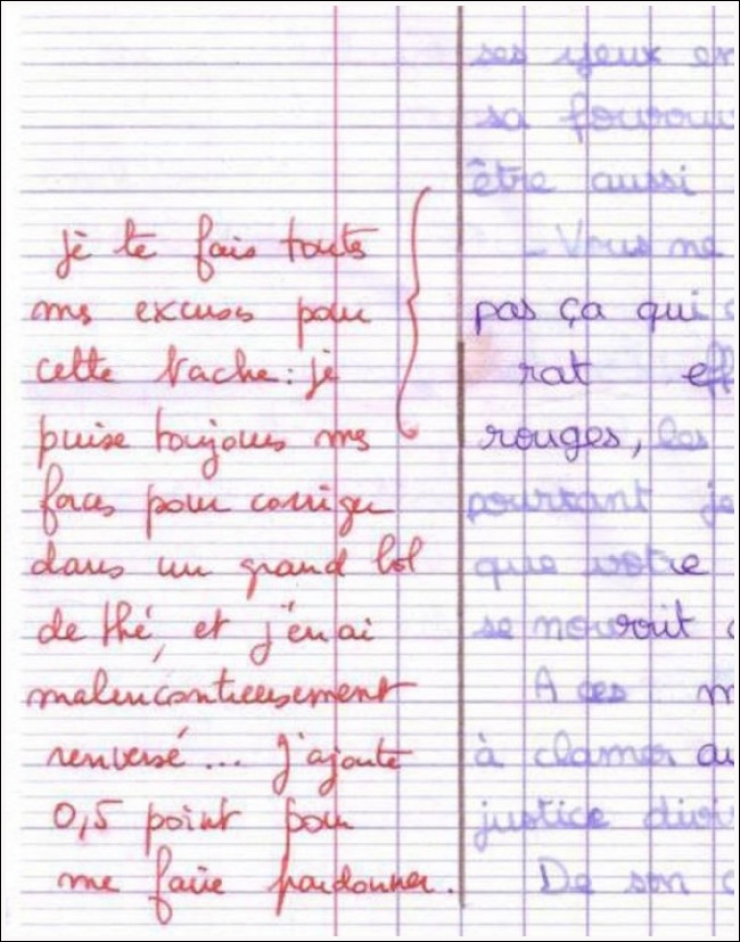 je te fais toutes
mes excuses pour
cette tache : je
puise toujours mes
forces pour corriger
dans un grand bol
de thé, et j'en ai
malencontreusement
renversé... J'ajoute
0,5 point pour
me faire pardonner.
ses yeux
sa
être aussi
- Vous ne
pas ça qui
rat eff
rouges, les
pourtant je
que votre
se nourrit
A ces m
à clamer au
justice divi
De son c